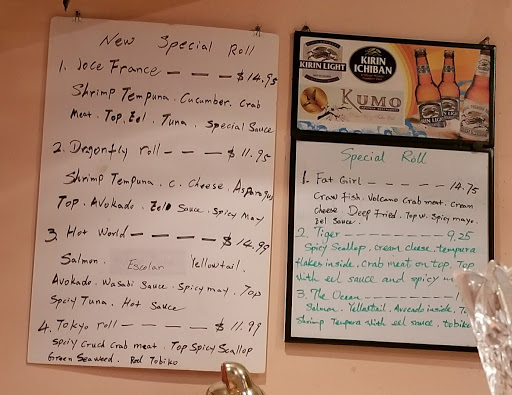 New Special Roll
1. Joce France — — — $14.95
Shrimp Tempuna. Cucumber. Crab
Meat. Top. Eel. Tuna. Special Sauce
2. Dragonfly roll — — — $11.95
Shrimp Tempuna. C. Cheese. Asparagus
Top. Avokado. Eel Sauce. Spicy May
3. Hot World — — — — $14.99
Salmon. Escolar Yellowtail.
Avokado. Wasabi Sauce. Spicy may. Top
Spicy Tuna. Hot Sauce
4. Tokyo roll — — — — $11.99
Spicy Crab meat. Top Spicy Scallop
Green Seaweed. Red Tobiko
KIRIN LIGHT
KIRIN
ICHIBAN
KUMO
KIRIN LIGHT
Special Roll
1. Fat Girl — — — — 14.75
Craw fish. Volcano Crab meat. Cream
cheese. Deep Fried. Top w. Spicy mayo.
Eel Sauce.
2. Tiger — — — — 9.25
Spicy Scallop. cream cheese. tempura
flakes inside. Crab meat on top. Top
with eel sauce and spicy
3. The Ocean — — — — 1
Salmon. Yellowtail. Avocado inside.
Shrimp Tempura with eel sauce. tobiko